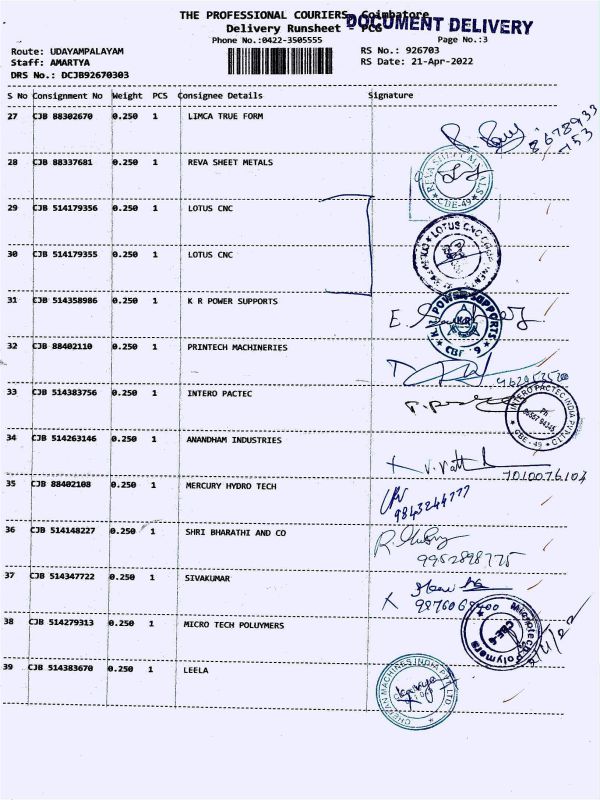 THE PROFESSIONAL COURIERS, Coimbatore
DOCUMENT DELIVERY
Delivery Runsheet - PCS
Phone No.:0422-3505555 Page No.:3
Route: UDAYAMPALAYAM RS No.: 926703
Staff: AMARTYA RS Date: 21-Apr-2022
DRS No.: DCJB92670303
S No Consignment No Weight PCS Consignee Details Signature
27 CJB 88302670 0.250 1 LIMCA TRUE FORM
8678933
753
28 CJB 88337681 0.250 1 REVA SHEET METALS
REVA SHEET METALS CBE-49
29 CJB 514179356 0.250 1 LOTUS CNC
LOTUS CNC
30 CJB 514179355 0.250 1 LOTUS CNC
31 CJB 514358986 0.250 1 K R POWER SUPPORTS
K R POWER SUPPORTS
32 CJB 88402110 0.250 1 PRINTECH MACHINERIES
33 CJB 514383756 0.250 1 INTERO PACTEC
INTERO PACTEC INDIA PVT LTD CBE-49
34 CJB 514263146 0.250 1 ANANDHAM INDUSTRIES
7010076104
35 CJB 88402108 0.250 1 MERCURY HYDRO TECH
9843244777
36 CJB 514148227 0.250 1 SHRI BHARATHI AND CO
9952898775
37 CJB 514347722 0.250 1 SIVAKUMAR
38 CJB 514279313 0.250 1 MICRO TECH POLUYMERS
Microtech Polymers
39 CJB 514383670 0.250 1 LEELA
MACHINES INDIA PVT LTD